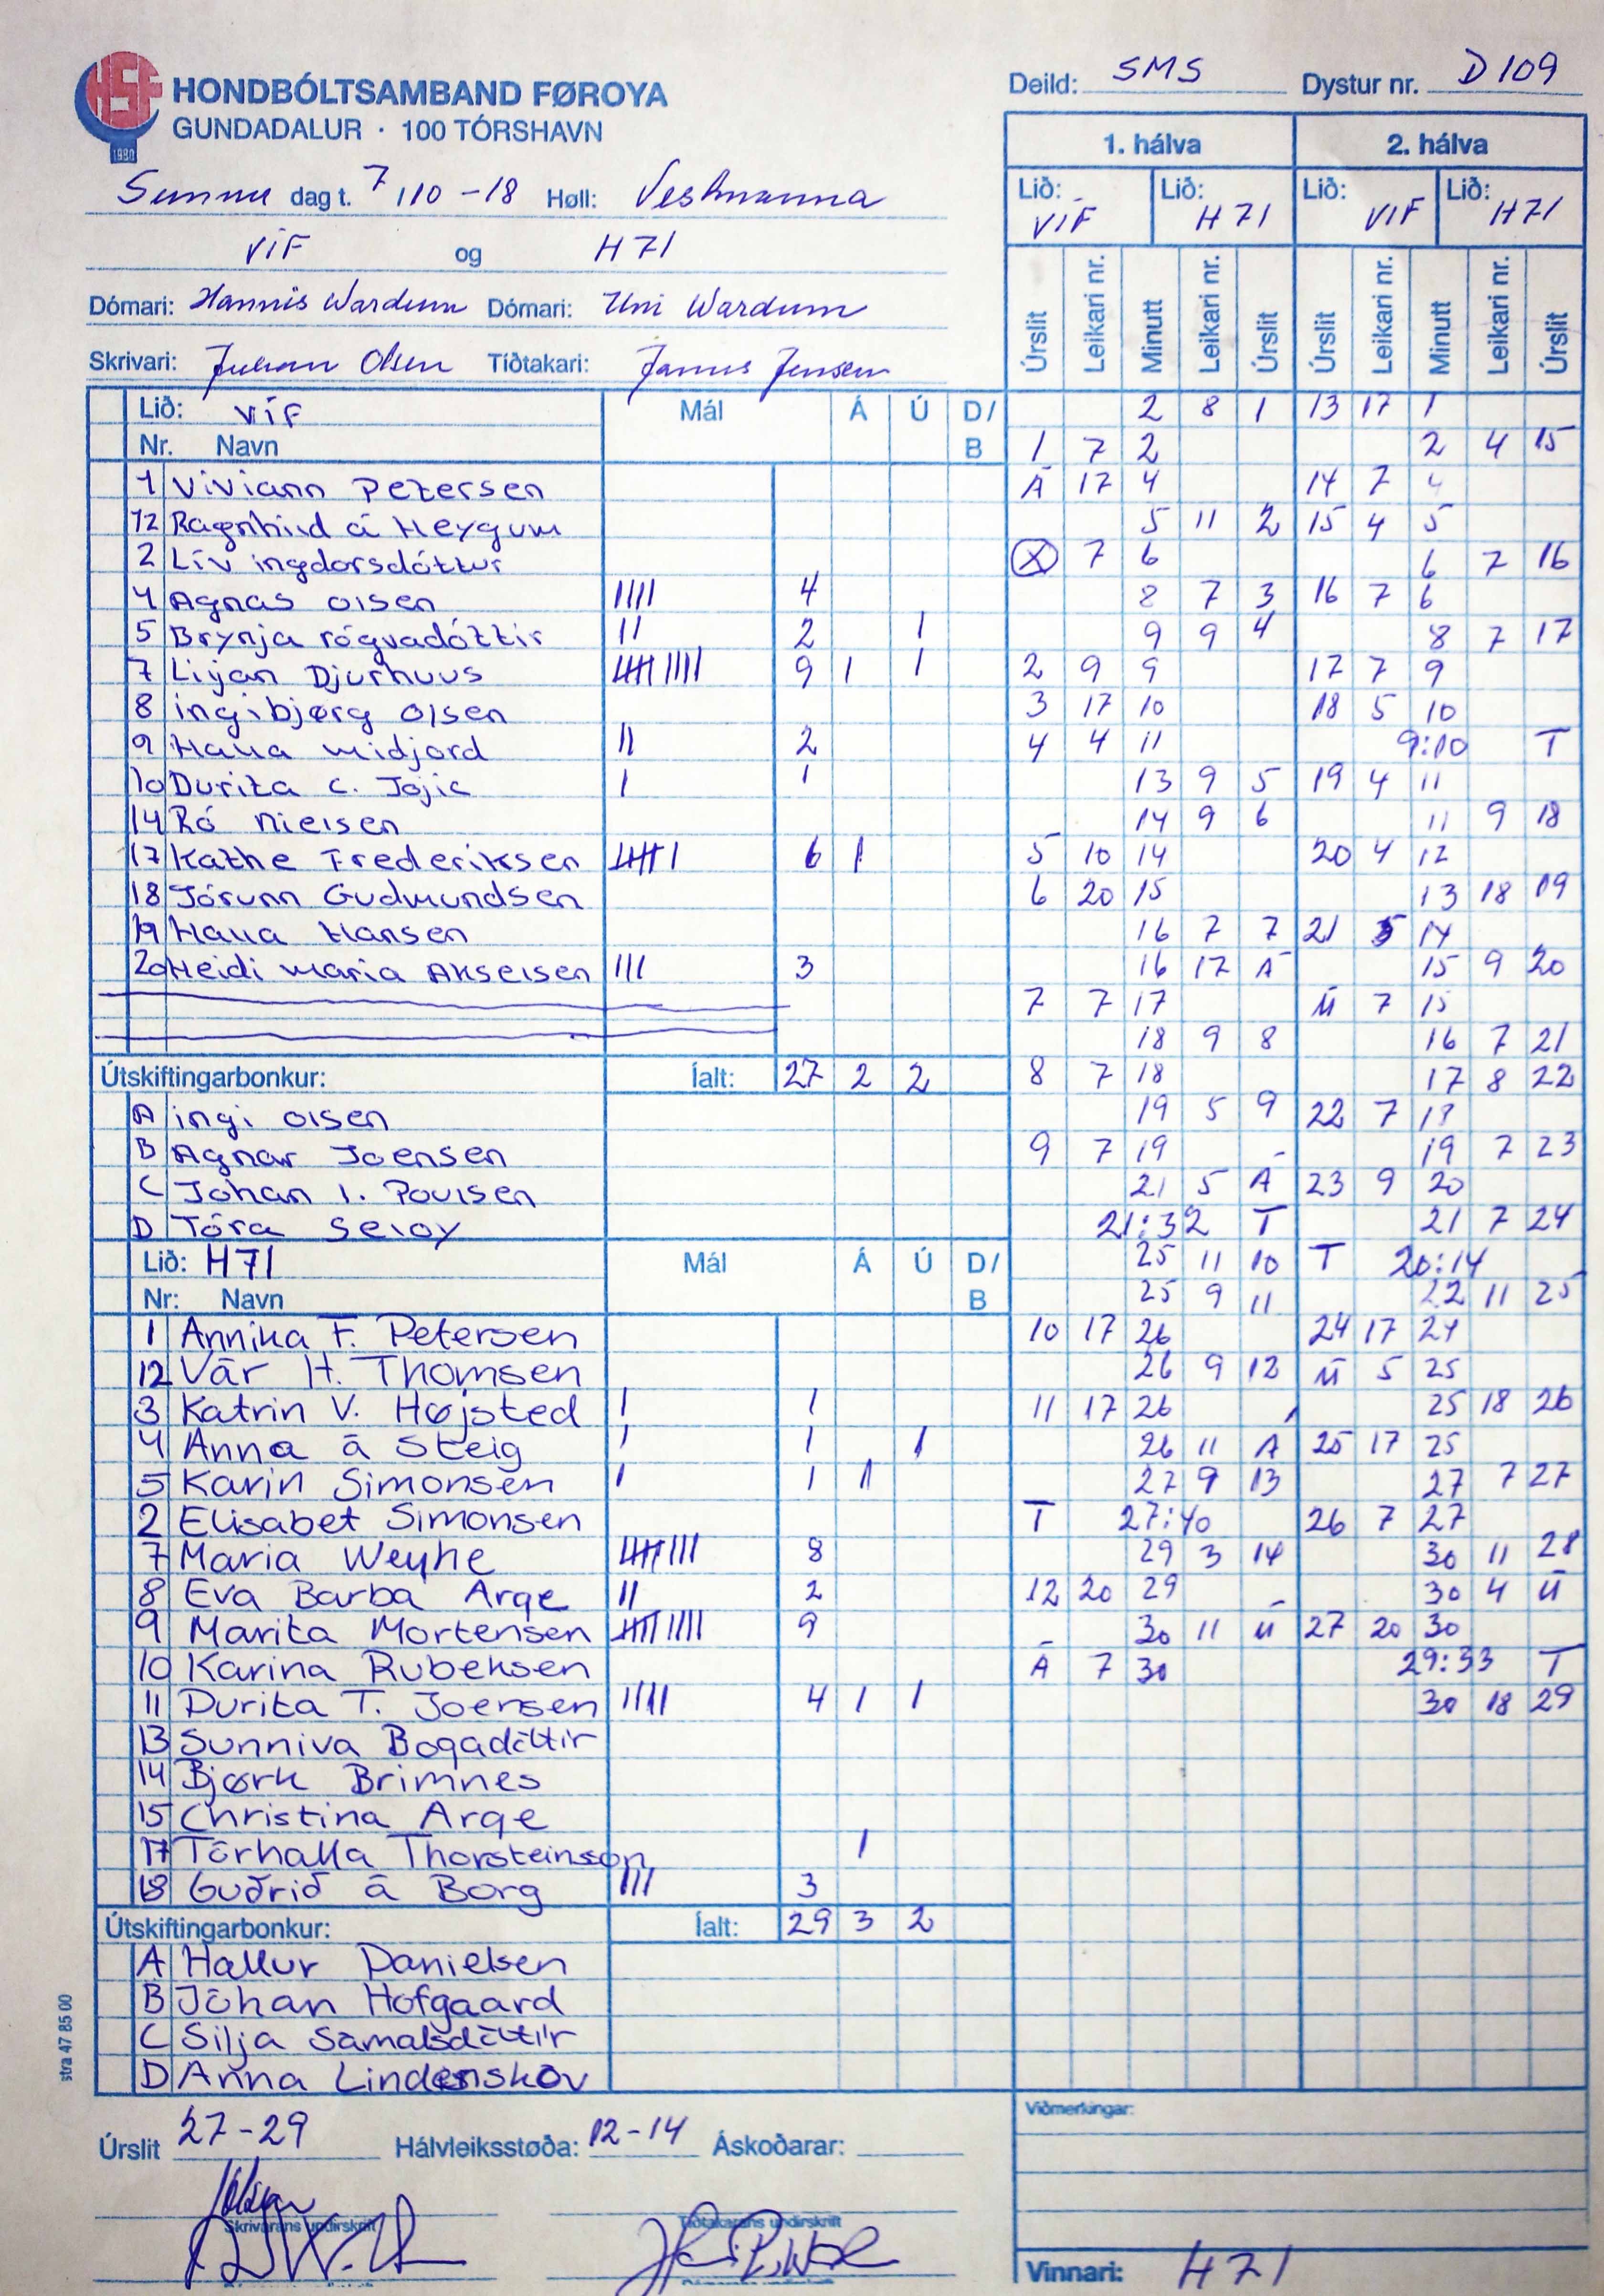 HSF
1980
HONDBÓLTSAMBAND FØROYA
GUNDADALUR · 100 TÓRSHAVN
Deild: SMS Dystur nr. D 109
Sunnu dag t. 7 / 10 - 18 Høll: Vestmanna
VÍF og H 71
Dómari: Hannis Wardum Dómari: Uni Wardum
Skrivari: Juhan Olsen Tíðtakari: Janus Jensen
1. hálva 2. hálva
Lið: VÍF Lið: H 71 Lið: VIF Lið: H71
Úrslit Leikari nr. Minutt Leikari nr. Úrslit Úrslit Leikari nr. Minutt Leikari nr. Úrslit
Lið: VÍF Mál Á Ú D/
Nr. Navn B
1 Viviann Petersen
12 Ragnhild á Heygum
2 Lív ingdorsdóttur
4 Agnas Olsen IIII 4
5 Brynja rógvadóttir II 2 1
7 Liljan Djurhuus IIIII IIII 9 1 1
8 ingibjørg Olsen
9 Halla midjord II 2
10 Durita C. Jojic I 1
14 Ró Nielsen
17 Kathe Frederiksen IIIII I 6 1
18 Jórunn Gudmundsen
19 Halla Hansen
20 Heidi Maria Akselsen III 3
Útskiftingarbonkur: Íalt: 27 2 2
A ingi Olsen
B Agnar Joensen
C Jóhan I. Poulsen
D Tóra Seloy
Lið: H71 Mál Á Ú D/
Nr: Navn B
1 Annika F. Petersen
12 Vár H. Thomsen
3 Katrin V. Højsted I 1
4 Anna á Steig I 1 1
5 Karin Simonsen I 1 1
2 Elisabet Simonsen
7 Maria Weyhe IIIII III 8
8 Eva Barba Arge II 2
9 Marita Mortensen IIIII IIII 9
10 Karina Rubeksen
11 Durita T. Joensen IIII 4 1 1
13 Sunniva Bogadóttir
14 Bjørk Brimnes
15 Christina Arge
17 Tórhalla Thorsteinsson 1
18 Guðrið á Borg III 3
Útskiftingarbonkur: Íalt: 29 3 2
A Hallur Danielsen
B Jóhan Hofgaard
C Silja Samalsdóttir
D Anna Lindenskov
2 8 1 13 17 1
1 7 2 2 4 15
Á 17 4 14 7 4
5 11 2 15 4 5
X 7 6 6 7 16
8 7 3 16 7 6
9 9 4 8 7 17
2 9 9 17 7 9
3 17 10 18 5 10
4 4 11 9:10 T
13 9 5 19 4 11
14 9 6 11 9 18
5 10 14 20 4 12
6 20 15 13 18 19
16 7 7 21 5 14
16 17 Á 15 9 20
7 7 17 Ú 7 15
18 9 8 16 7 21
8 7 18 17 8 22
19 5 9 22 7 18
9 7 19 19 7 23
21 5 Á 23 9 20
21:32 T 21 7 24
25 11 10 T 20:14
25 9 11 22 11 25
10 17 26 24 17 24
26 9 12 Ú 5 25
11 17 26 25 18 26
26 11 Á 25 17 25
27 9 13 27 7 27
T 27:40 26 7 27
29 3 14 30 11 28
12 20 29 30 4 Ú
30 11 Ú 27 20 30
Á 7 30 29:33 T
30 18 29
stra 47 85 00
Úrslit 27-29 Hálvleiksstøða: 12-14 Áskoðarar:
Skrivarans undirskrift Tíðtakarans undirskrift
Viðmerkingar:
Vinnari: H71